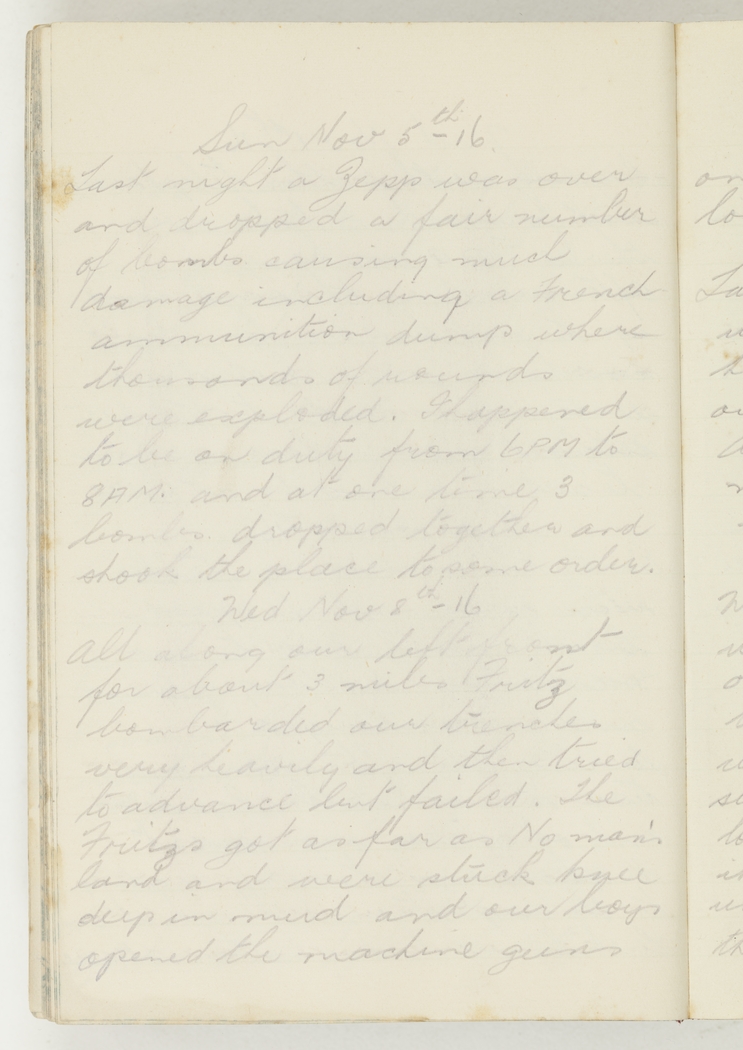 Sun Nov 5th-16.
Last night a Zepp was over
and dropped a fair number
of bombs causing much
damage including a French
ammunition dump where
thousands of rounds
were exploded. I happened
to be on duty from 6PM to
8AM. and at one time 3
bombs dropped together and
shook the place to some order.
Wed Nov 8th-16
All along our left front
for about 3 miles Fritz
bombarded our trenches
very heavily and then tried
to advance but failed. The
Fritzs got as far as No man's
land and were stuck knee
deep in mud and our boys
opened the machine guns